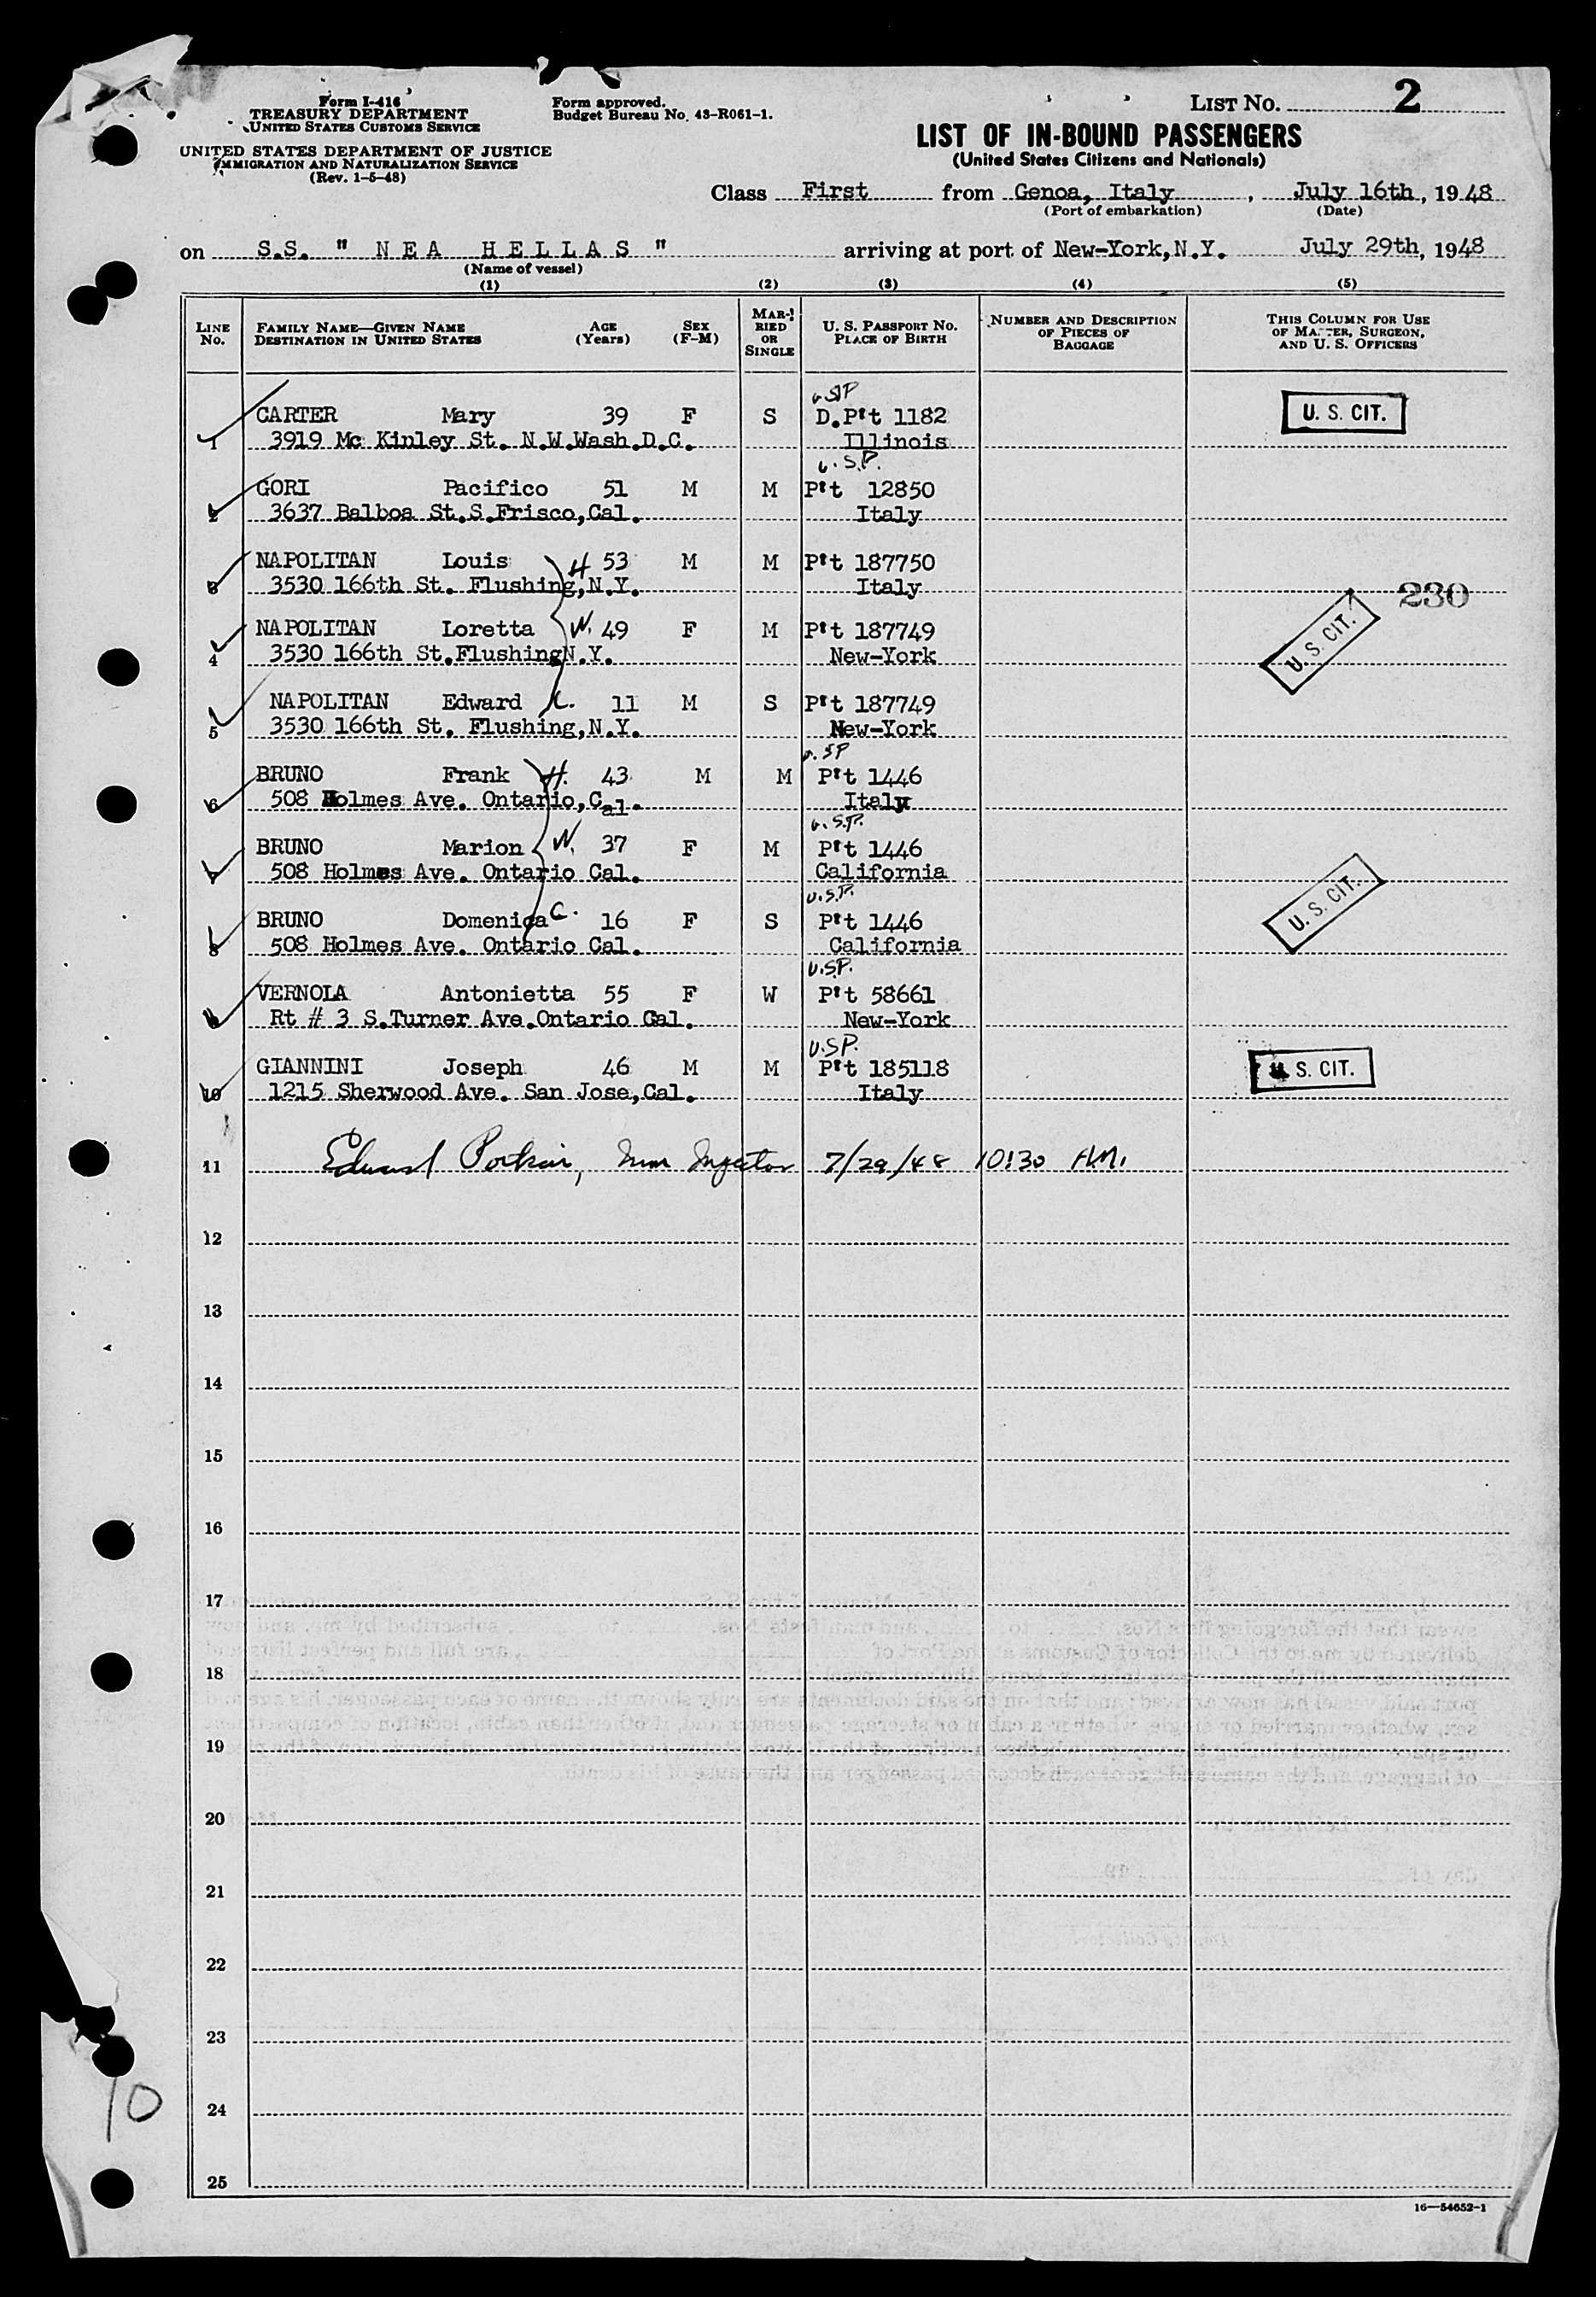 Form I-416
TREASURY DEPARTMENT
UNITED STATES CUSTOMS SERVICE
UNITED STATES DEPARTMENT OF JUSTICE
IMMIGRATION AND NATURALIZATION SERVICE
(Rev. 1-5-48)
Form approved.
Budget Bureau No. 43-R061-1.
LIST NO. 2
LIST OF IN-BOUND PASSENGERS
(United States Citizens and Nationals)
Class First from Genoa, Italy, July 16th, 1948
(Port of embarkation) (Date)
on S.S. " NEA HELLAS " arriving at port of New-York,N.Y. July 29th, 1948
(Name of vessel)
(1) (2) (3) (4) (5)
LINE No. FAMILY NAME—GIVEN NAME DESTINATION IN UNITED STATES AGE (Years) SEX (F-M) MARRIED OR SINGLE U. S. PASSPORT NO. PLACE OF BIRTH NUMBER AND DESCRIPTION OF PIECES OF BAGGAGE THIS COLUMN FOR USE OF MASTER, SURGEON, AND U. S. OFFICERS
USP
CARTER Mary 39 F S D.P't 1182 U. S. CIT.
1 3919 Mc Kinley St. N.W.Wash.D.C. Illinois
U.S.P.
GORI Pacifico 51 M M P't 12850
2 3637 Balboa St.S.Frisco,Cal. Italy
NAPOLITAN Louis H 53 M M P't 187750
3 3530 166th St. Flushing,N.Y. Italy 230
NAPOLITAN Loretta W. 49 F M P't 187749 U. S. CIT.
4 3530 166th St.FlushingN.Y. New-York
NAPOLITAN Edward C. 11 M S P't 187749
5 3530 166th St. Flushing,N.Y. New-York
U.SP
BRUNO Frank H. 43 M M P't 1446
6 508 Holmes Ave. Ontario,Cal. Italy
U.S.P.
BRUNO Marion W. 37 F M P't 1446
7 508 Holmes Ave. Ontario Cal. California
U.S.P.
BRUNO Domenica C. 16 F S P't 1446 U. S. CIT.
8 508 Holmes Ave. Ontario Cal. California
U.S.P.
VERNOLA Antonietta 55 F W P't 58661
9 Rt # 3 S.Turner Ave.Ontario Cal. New-York
U.S.P.
GIANNINI Joseph 46 M M P't 185118 U. S. CIT.
10 1215 Sherwood Ave. San Jose,Cal. Italy
11 Edward 7/29/48 10:30 A.M.
12
13
14
15
16
17
18
19
20
21
22
23
24
25
10
16—54652-1